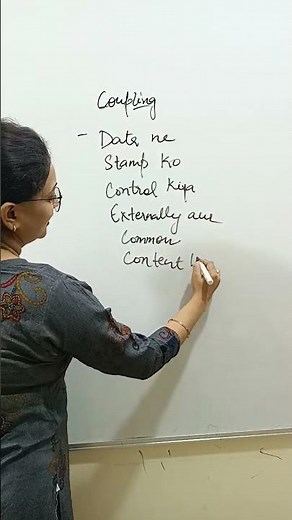 Coupling
- Data ne
Stamp ko
Control kiya
Externally aur
Common
Content